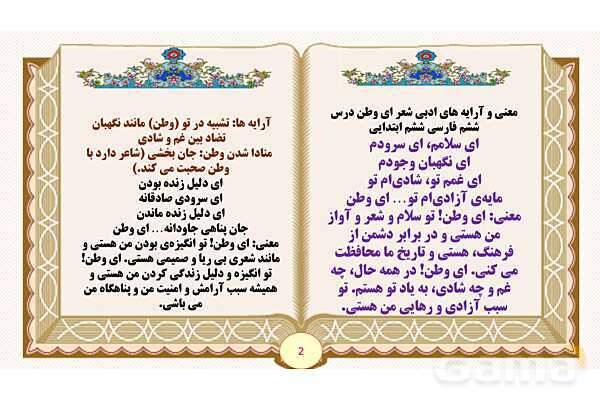 معنی و آرایه های ادبی شعر ای وطن درس
ششم فارسی ششم ابتدایی
ای سلامم، ای سرودم
ای نگهبان وجودم
ای غمم تو، شادی‌ام تو
مایه‌ی آزادی‌ام تو... ای وطن
معنی: ای وطن! تو سلام و شعر و آواز
من هستی و در برابر دشمن از
فرهنگ، هستی و تاریخ ما محافظت
می کنی. ای وطن! در همه حال، چه
غم و چه شادی، به یاد تو هستم. تو
سبب آزادی و رهایی من هستی.
آرایه ها: تشبیه در تو (وطن) مانند نگهبان
تضاد بین غم و شادی
منادا شدن وطن: جان بخشی (شاعر دارد با
وطن صحبت می کند.)
ای دلیل زنده بودن
ای سرودی صادقانه
ای دلیل زنده ماندن
جان پناهی جاودانه... ای وطن
معنی: ای وطن! تو انگیزه‌ی بودن من هستی و
مانند شعری بی ریا و صمیمی هستی. ای وطن!
تو انگیزه و دلیل زندگی کردن من هستی و
همیشه سبب آرامش و امنیت من و پناهگاه من
می باشی.
2
Gama